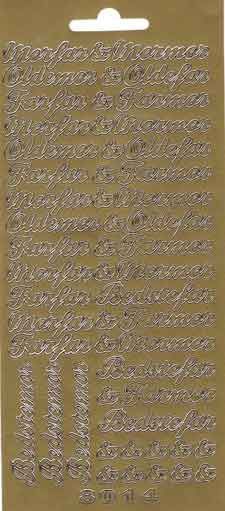 Morfar & Mormor
Oldemor & Oldefar
Farfar & Farmor
Morfar & Mormor
Oldemor & Oldefar
Farfar & Farmor
Morfar & Mormor
Oldemor & Oldefar
Farfar & Farmor
Morfar & Mormor
Farfar Bedstefar
Morfar & Farmor
Farfar & Mormor
Bedstemor
Bedstemor
Bedstemor
Bedstefar
& Farmor
Bedstefar
& & & & &
& & & & &
8914